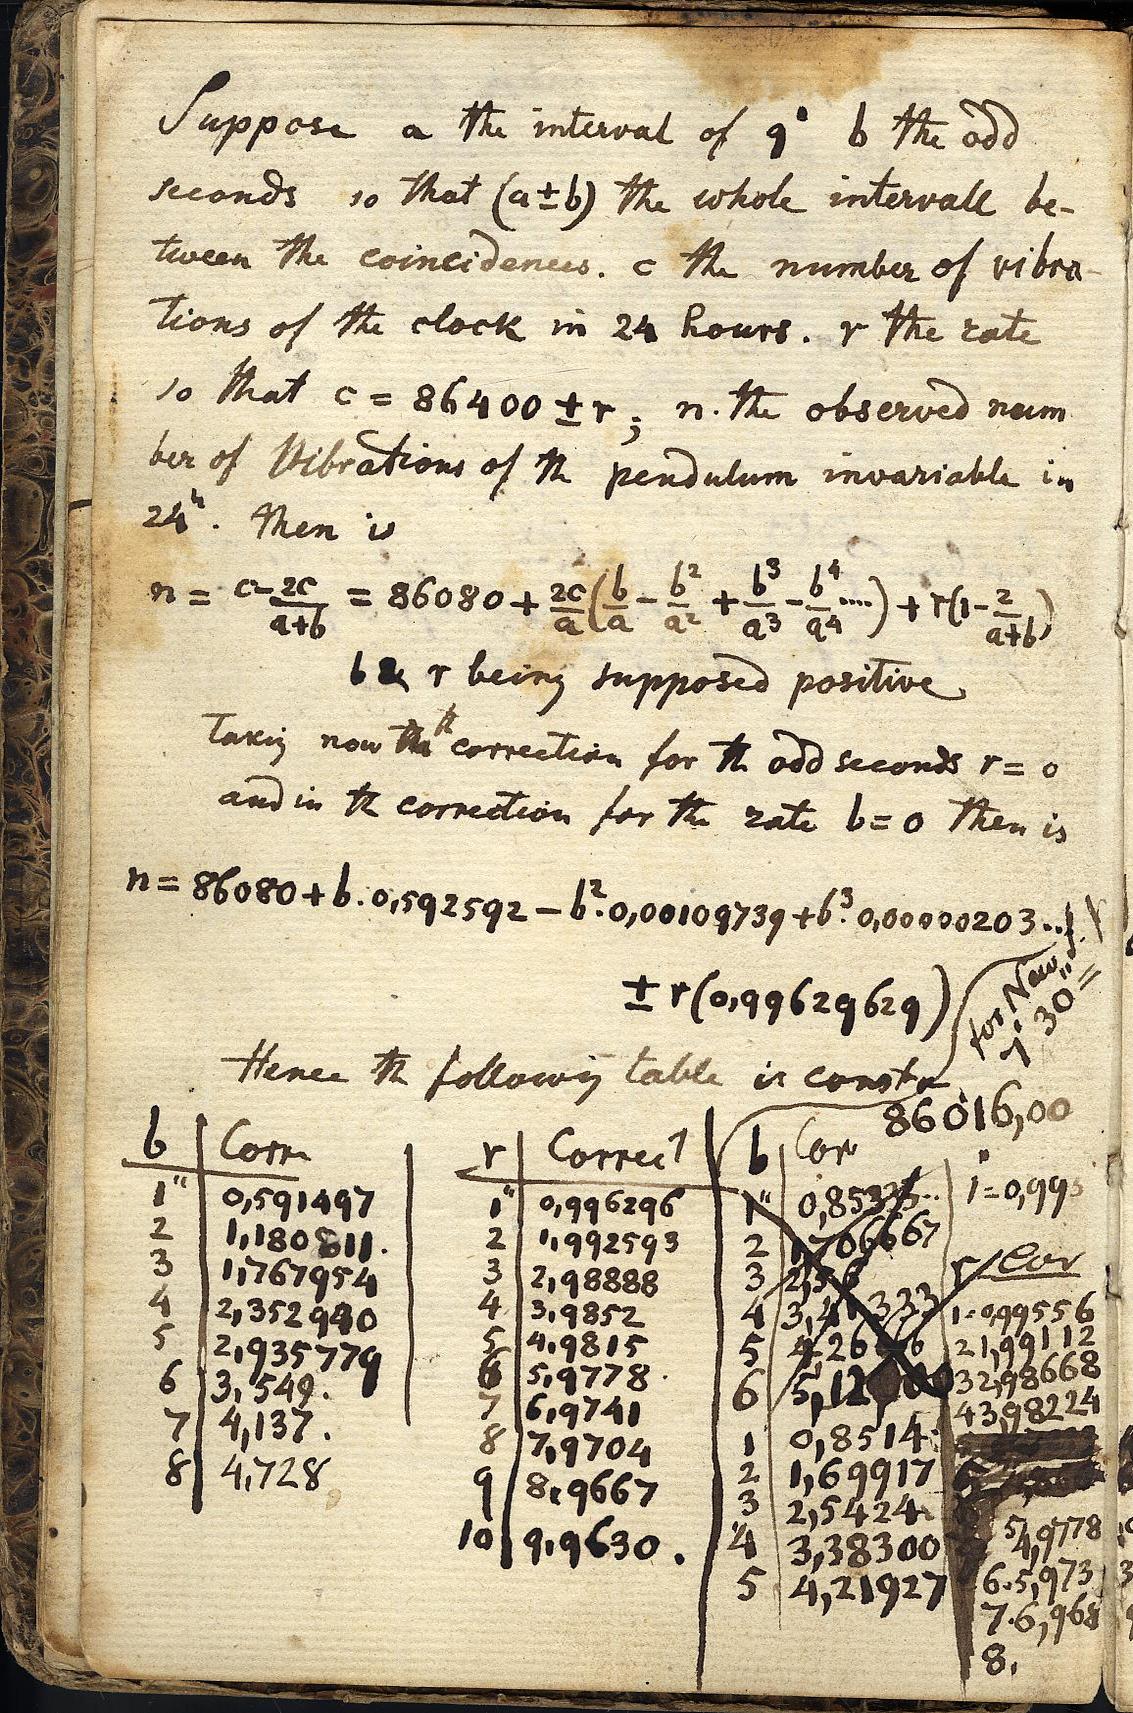 Suppose a the interval of 9' b the odd
seconds so that (a±b) the whole intervall be-
tween the coincidences. c the number of vibra-
tions of the clock in 24 hours. r the rate
so that c = 86400 ± r; n. the observed num
ber of Vibrations of th pendulum invariable in
24h. Then is
n = c - 2c/(a+b) = 86080 + 2c/a (b/a - b²/a² + b³/a³ - b⁴/a⁴ ....) + r(1 - 2/(a+b))
b & r being supposed positive
Taking now th correction for th odd seconds r = 0
and in th correction for the rate b = 0 Then is
n = 86080 + b. 0,592592 - b². 0,00109739 + b³. 0,00000203...
± r (0,99629629)
for New
7' 30" =
Hence th following table is constr
86016,00
b | Corr.
1" | 0,591497
2 | 1,180811.
3 | 1,767954
4 | 2,352940
5 | 2,935779
6 | 3,549.
7 | 4,137.
8 | 4,728
r | Correct
1" | 0,996296
2 | 1,992593
3 | 2,98888
4 | 3,9852
5 | 4,9815
6 | 5,9778.
7 | 6,9741
8 | 7,9704
9 | 8,9667
10 | 9,9630.
b | Cor
1" | 0,85333..
2 | 1,706667
3 | 2,56
4 | 3,41333
5 | 4,26666
6 | 5,12
1 | 0,8514
2 | 1,69917
3 | 2,5424
4 | 3,38300
5 | 4,21927
1 = 0,995
r / Cor
1. 0,99556
2 1,99112
3 2,98668
4 3,98224
5 4,9778
6. 5,973
7. 6,968
8.